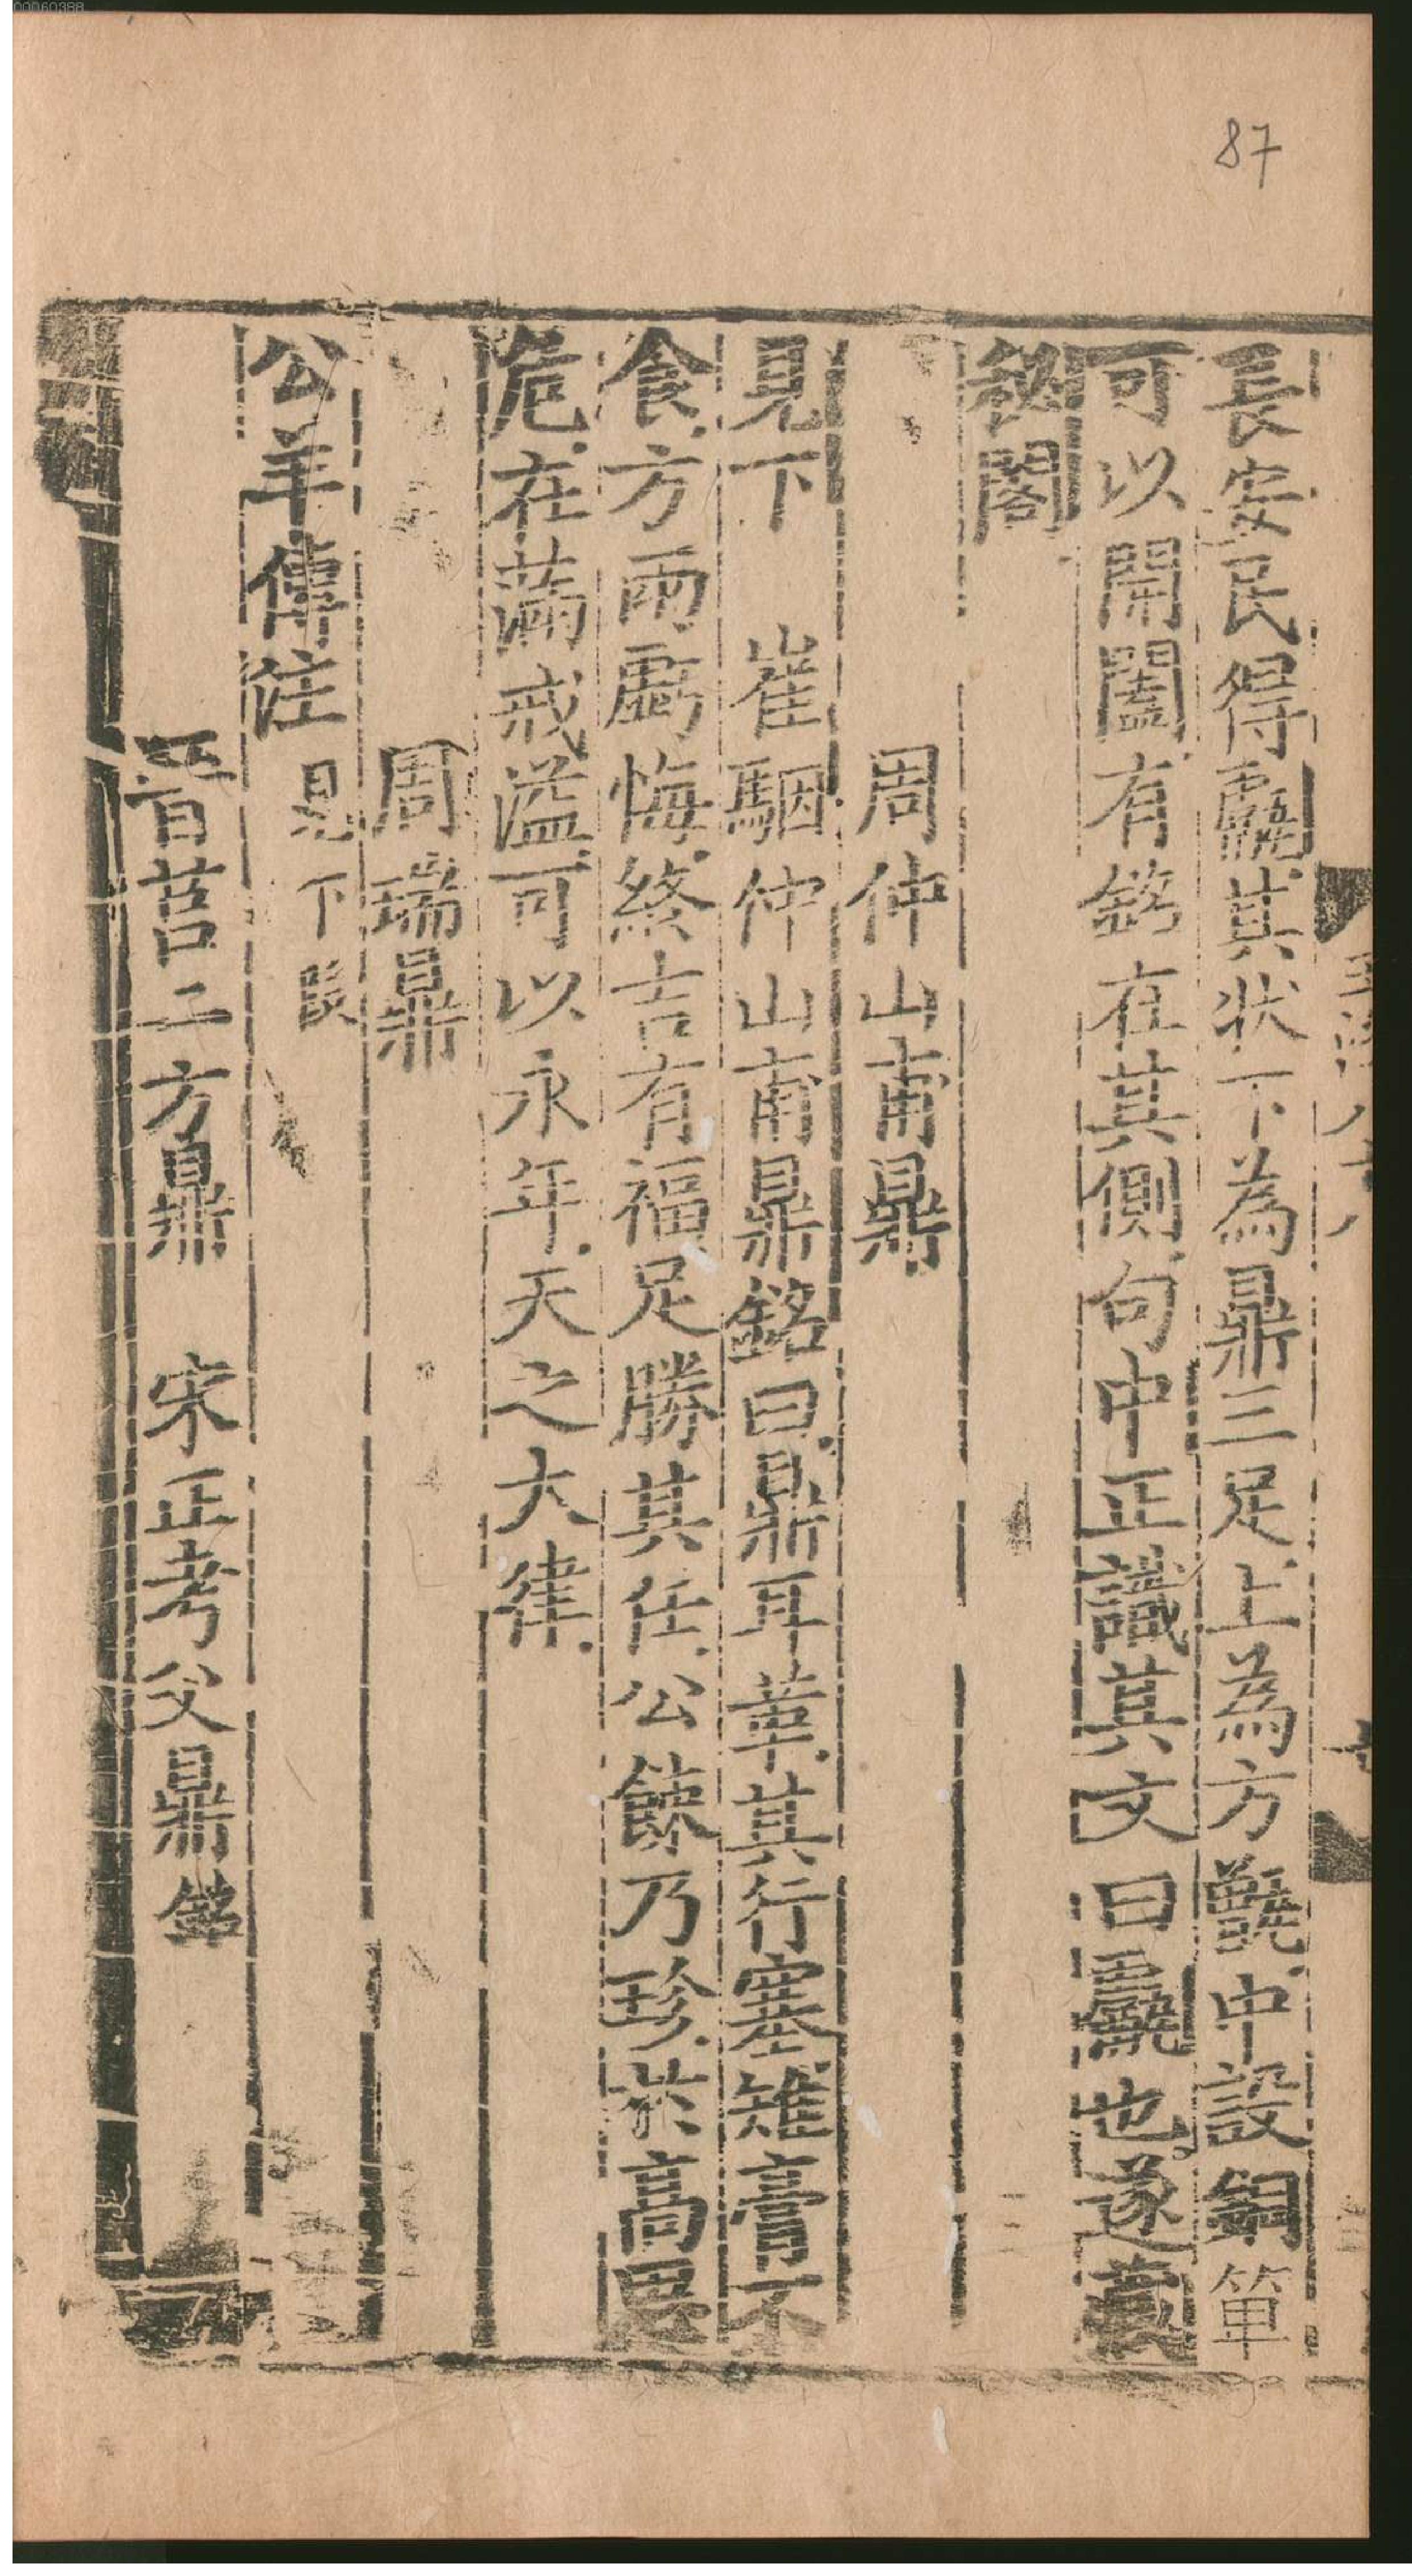 00060388
87
長安民得甗其狀下為鼎三足上為方甑中設銅箄
可以開闔有銘在其側句中正識其文曰甗也遂藏
秘閣
周仲山甫鼎
見下　崔駰仲山甫鼎銘曰鼎耳革其行塞雉膏不
食方雨虧悔終吉有福足勝其任公餗乃珍於高思
危在滿戒溢可以永年天之大律
周瑞鼎
公羊傳注見下段
晉莒二方鼎　宋正考父鼎銘